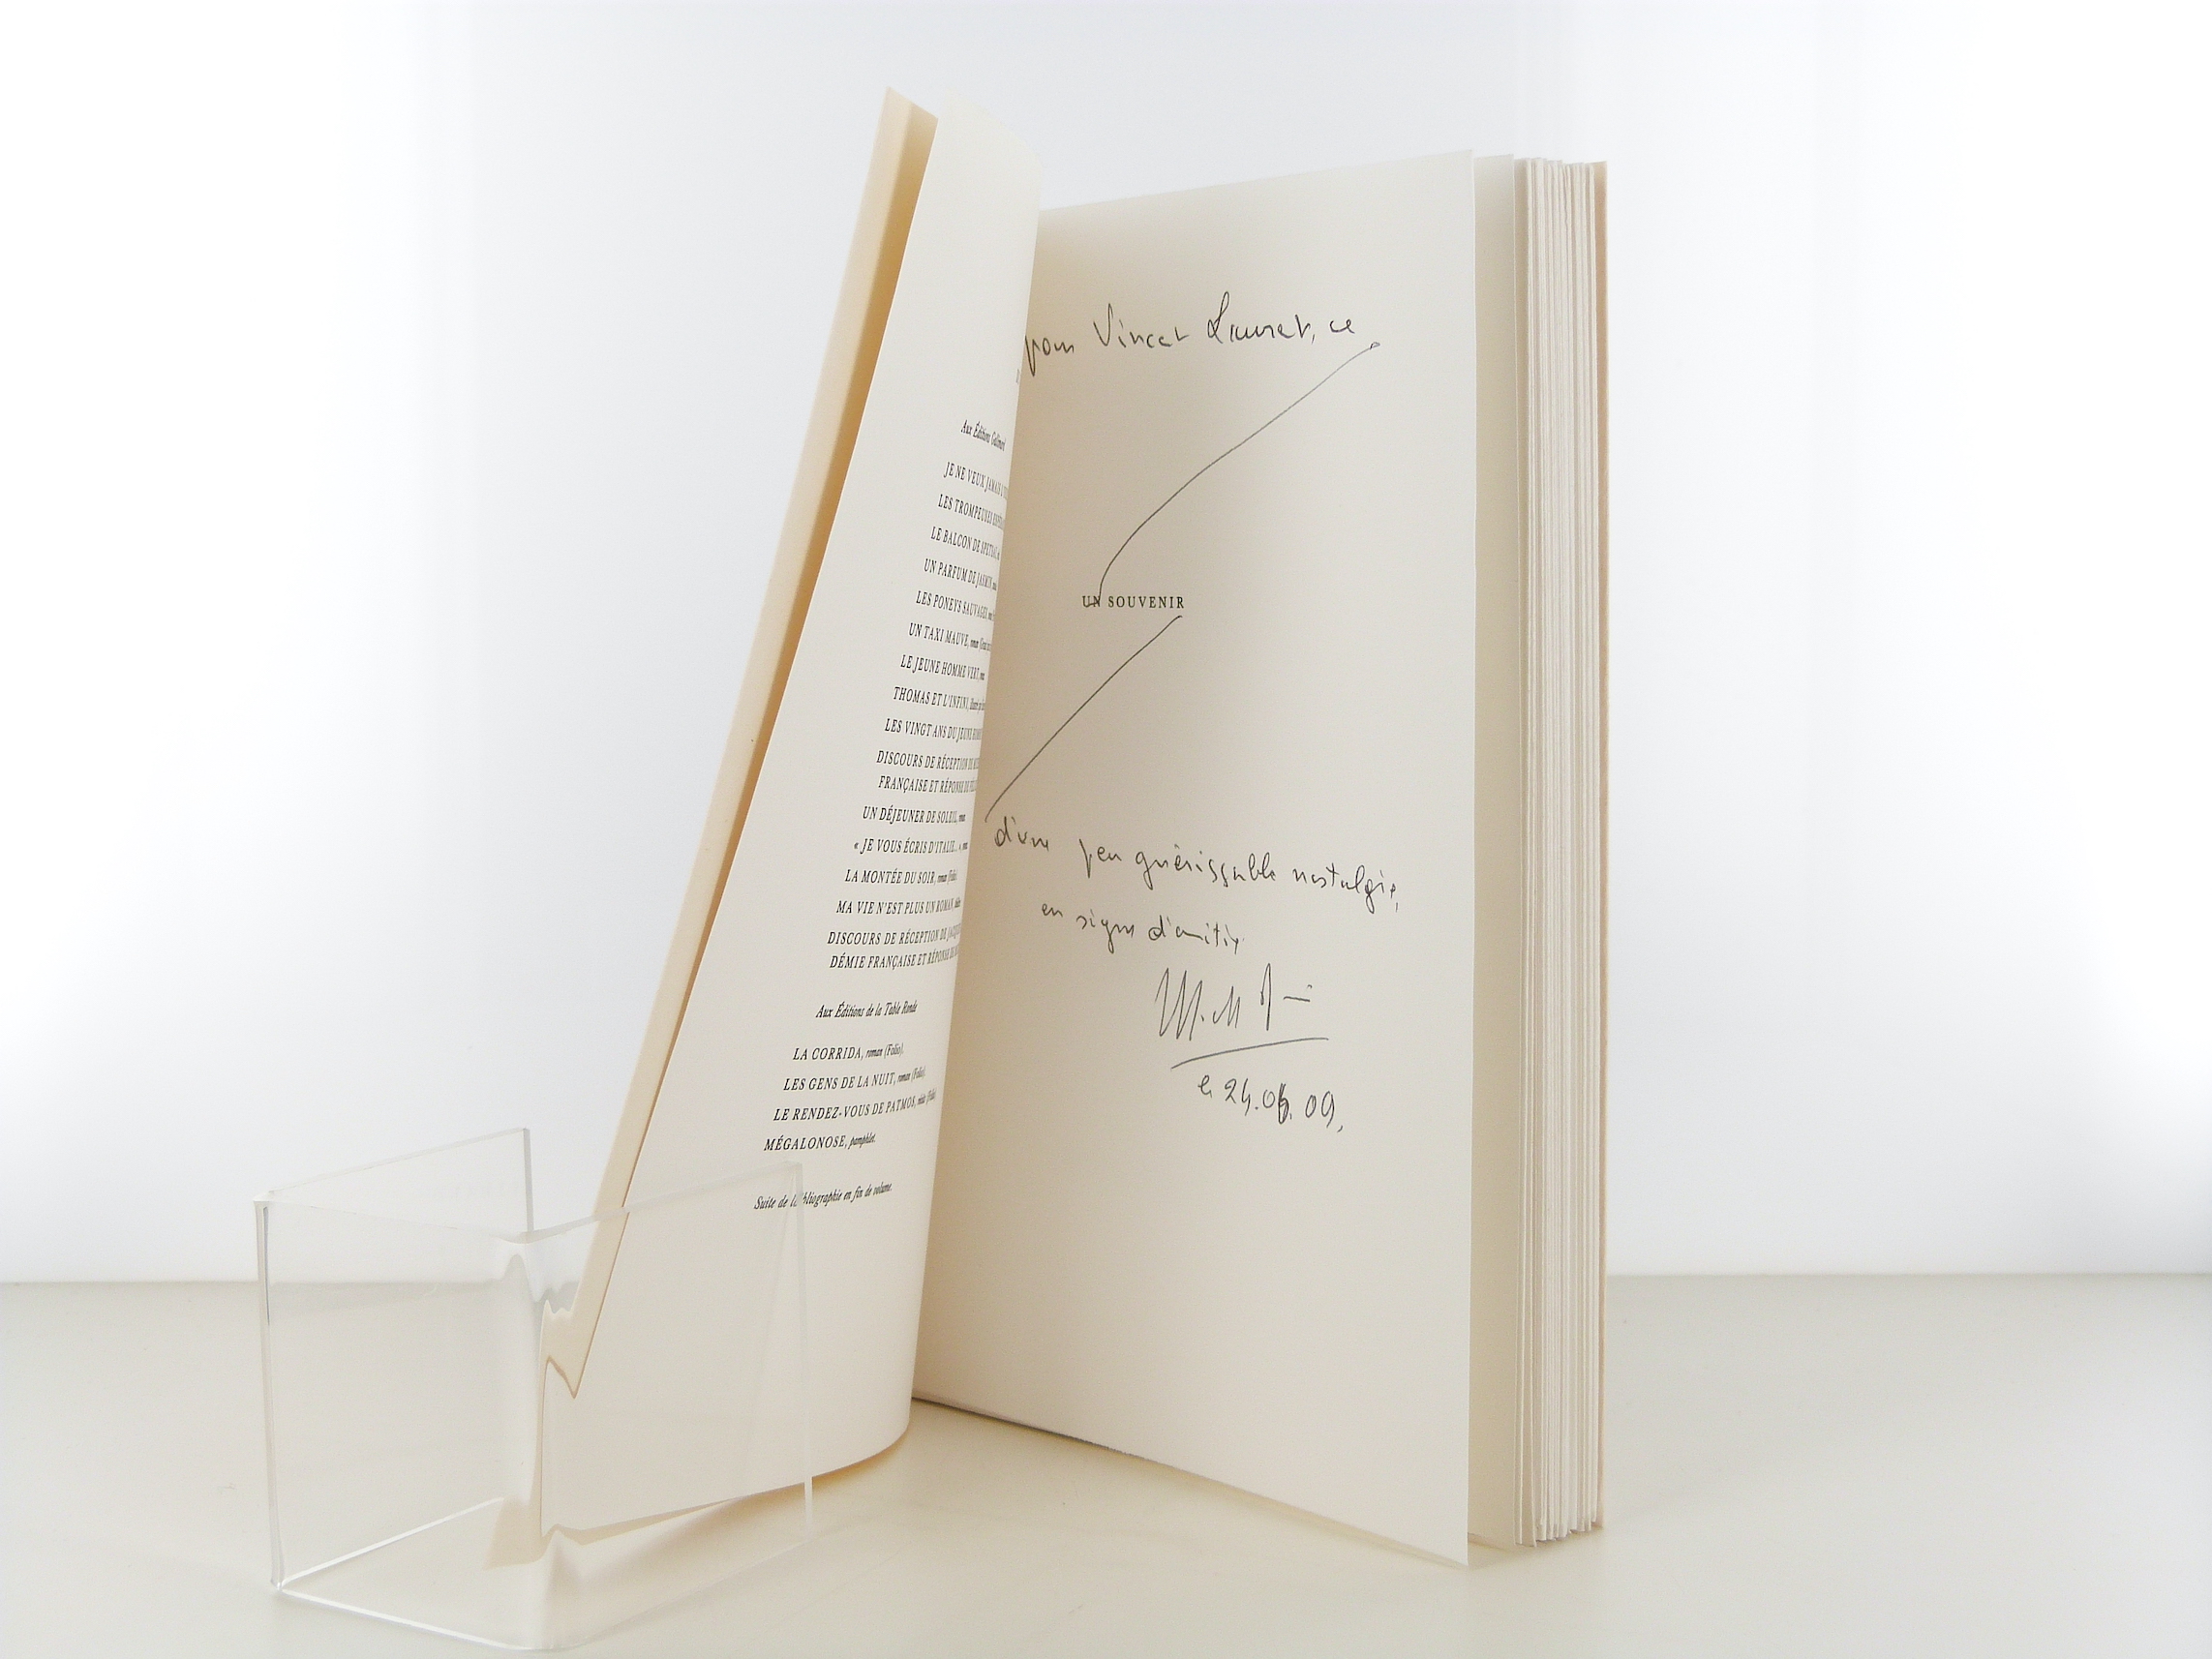 Aux Éditions Gallimard
JE NE VEUX JAMAIS L'OU
LES TROMPEUSES ESPÉR
LE BALCON DE SPETSAI, r
UN PARFUM DE JASMIN, nou
LES PONEYS SAUVAGES, rom
UN TAXI MAUVE, roman
LE JEUNE HOMME VERT, rom
THOMAS ET L'INFINI,
LES VINGT ANS DU JEUNE HOM
DISCOURS DE RÉCEPTION DE MI
FRANÇAISE ET RÉPONSE DE FÉLI
UN DÉJEUNER DE SOLEIL, roman
« JE VOUS ÉCRIS D'ITALIE... », rom
LA MONTÉE DU SOIR, roman (Folio).
MA VIE N'EST PLUS UN ROMAN,
DISCOURS DE RÉCEPTION DE JACQU
DÉMIE FRANÇAISE ET RÉPONSE DE
Aux Éditions de la Table Ronde
LA CORRIDA, roman (Folio).
LES GENS DE LA NUIT, roman (Folio).
LE RENDEZ-VOUS DE PATMOS, récits (Folio)
MÉGALONOSE, pamphlet.
Suite de la bibliographie en fin de volume.
pour Vincent Lauret, ce
UN SOUVENIR
d'une peu guérissable nostalgie,
en signe d'amitié,
le 24.06.09,